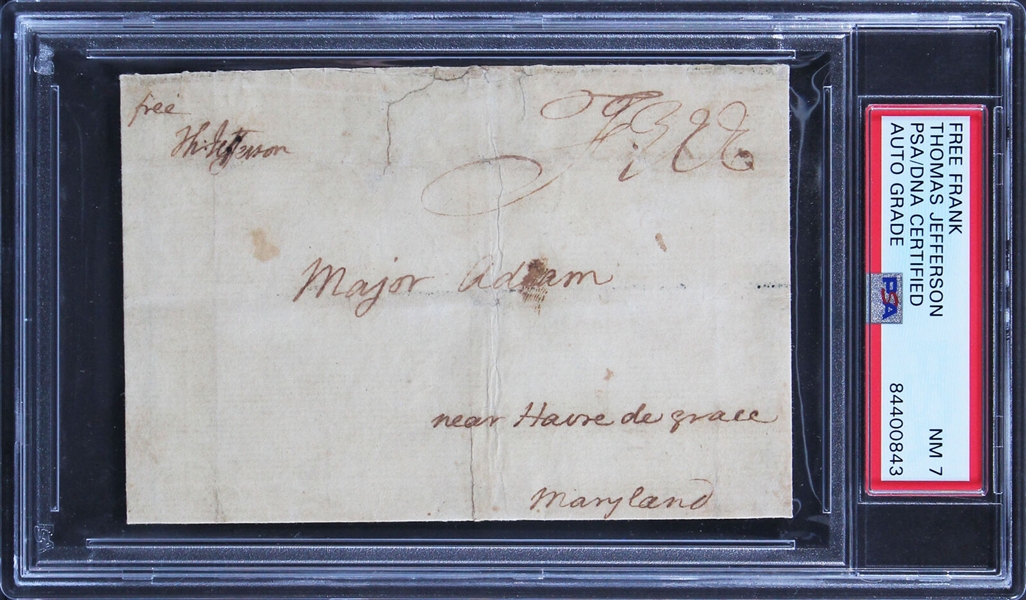 free
Th: Jefferson
FREE
Major Adlam
near Havre de grace
Maryland
FREE FRANK
THOMAS JEFFERSON
PSA/DNA CERTIFIED
AUTO GRADE
NM 7
84400843
PSA